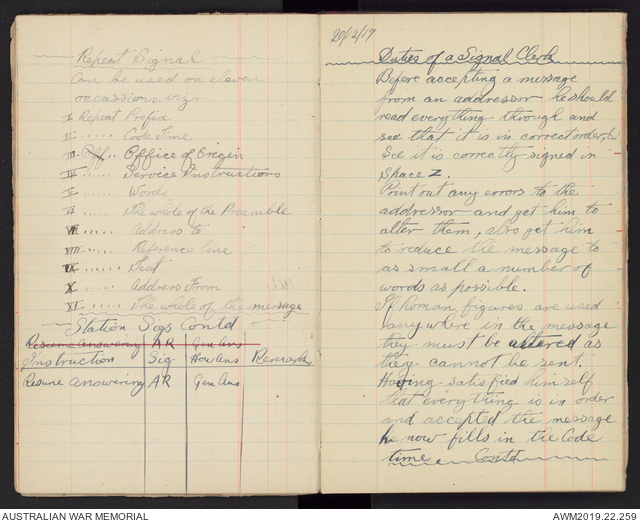 Repeat Signal
Can be used on eleven
occassions. viz:-
I Repeat Prefix
II " " " " " Code Time
III Off " " Office of Origin
IV " " " " " Service Instructions
V " " " " " Words
VI " " " " " The whole of the Preamble
VII " " " " " Address to
VIII " " " " " Reference line
IX " " " " " Text
X " " " " " Address From
XI " " " " " The whole of the message
Station Sigs Contd
Resume Answering AR Gen Ans
Instruction Sig How Ans Remarks
Resume Answering AR Gen Ans
20/2/17
Duties of a Signal Clerk
Before accepting a message
from an addressor he should
read everything through and
see that it is in correct order &
See it is correctly signed in
Space Z.
Point out any errors to the
addressor and get him to
alter them, also get him
to reduce the message to
as small a number of
words as possible.
If Roman figures are used
anywhere in the message
they must be altered as
they cannot be sent.
Having satisfied himself
that everything is in order
and accepted the message
he now fills in the Code
time Contd
AUSTRALIAN WAR MEMORIAL
AWM2019.22.259